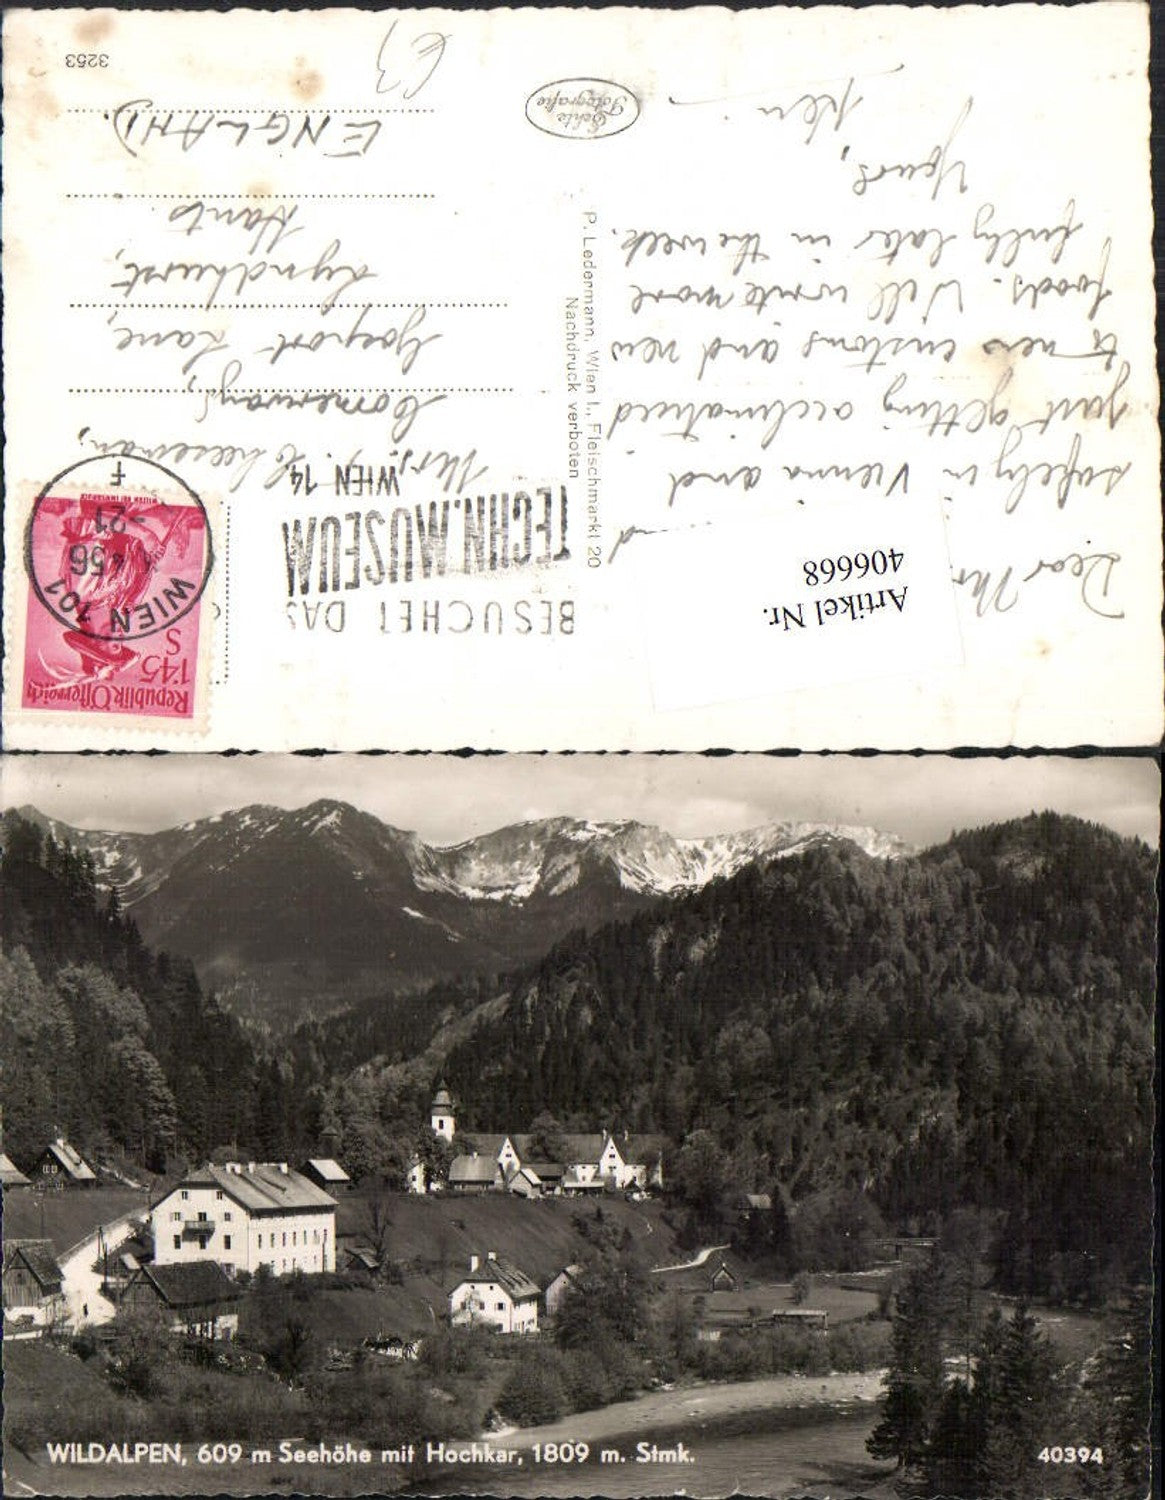 Dear Mr
safely in Vienna and
just getting acclimatised
to new customs and new
foods. Will write more
fully later in the week.
Yours,
Ken
Artikel Nr.
406668
BESUCHET DAS
TECHN. MUSEUM
WIEN 14.
P. Ledermann, Wien I., Fleischmarkt 20
Nachdruck verboten
Echte
Fotografie
Republik Österreich
1'45
S
WIEN 101
4 56
-21
F
Mrs. Cheeseman,
Cornerways,
Gosport Lane,
Lyndhurst,
Hants
ENGLAND.
3253
WILDALPEN, 609 m Seehöhe mit Hochkar, 1809 m. Stmk.
40394